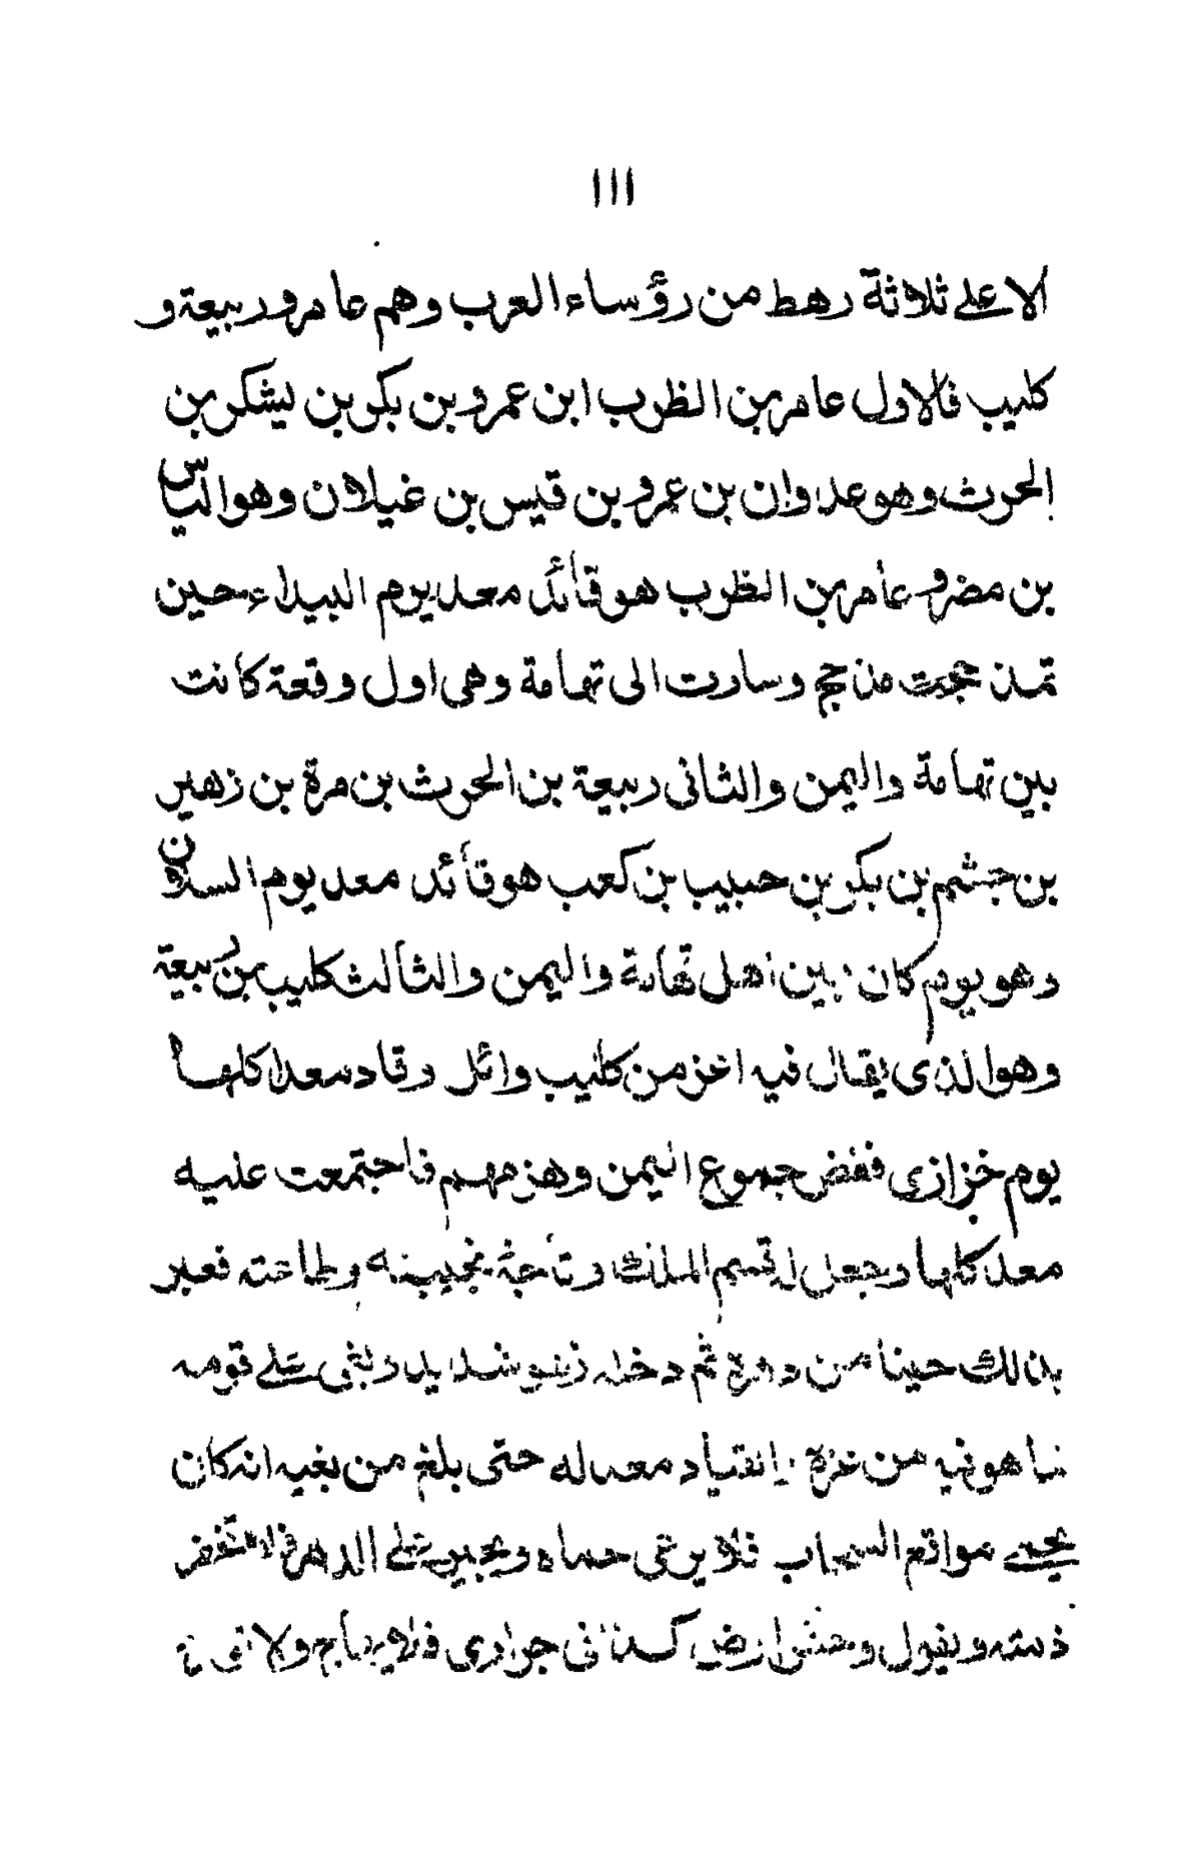 ١١١
الا على ثلاثة رهط من رؤساء العرب وهم عامر وربيعة و
كليب فالاول عامر بن الظرب ابن عمرو بن بكر بن يشكر بن
الحرث وهو عدوان بن عمرو بن قيس بن غيلان وهو الياس
بن مضر و عامر بن الظرب هو قائد معد يوم البيداء حين
تمذحجت مذحج وسارت الى تهامة وهى اول وقعة كانت
بين تهامة واليمن والثانى ربيعة بن الحرث بن مرة بن زهير
بن جشم بن بكر بن حبيب بن كعب هو قائد معد يوم السلان
وهو يوم كان بين اهل تهامة واليمن والثالث كليب بن ربيعة
وهو الذى يقال فيه اعز من كليب وائل وقاد معدا كلها
يوم خزازى ففض جموع اليمن وهزمهم فاجتمعت عليه
معد كلها وجعل له قسم الملك وتاجه وطاعته فعبر
بذالك حينا من دهره ثم دخله زهو شديد وبغى على قومه
لما هو فيه من عزة انقياد معد له حتى بلغ من بغيه انه كان
يحمى مواقع السحاب فلا يرعى حماه ويجير على الدهر فلا تخفر
ذمته ويقول وحش ارض كذا فى جوارى فلا يهاج ولا